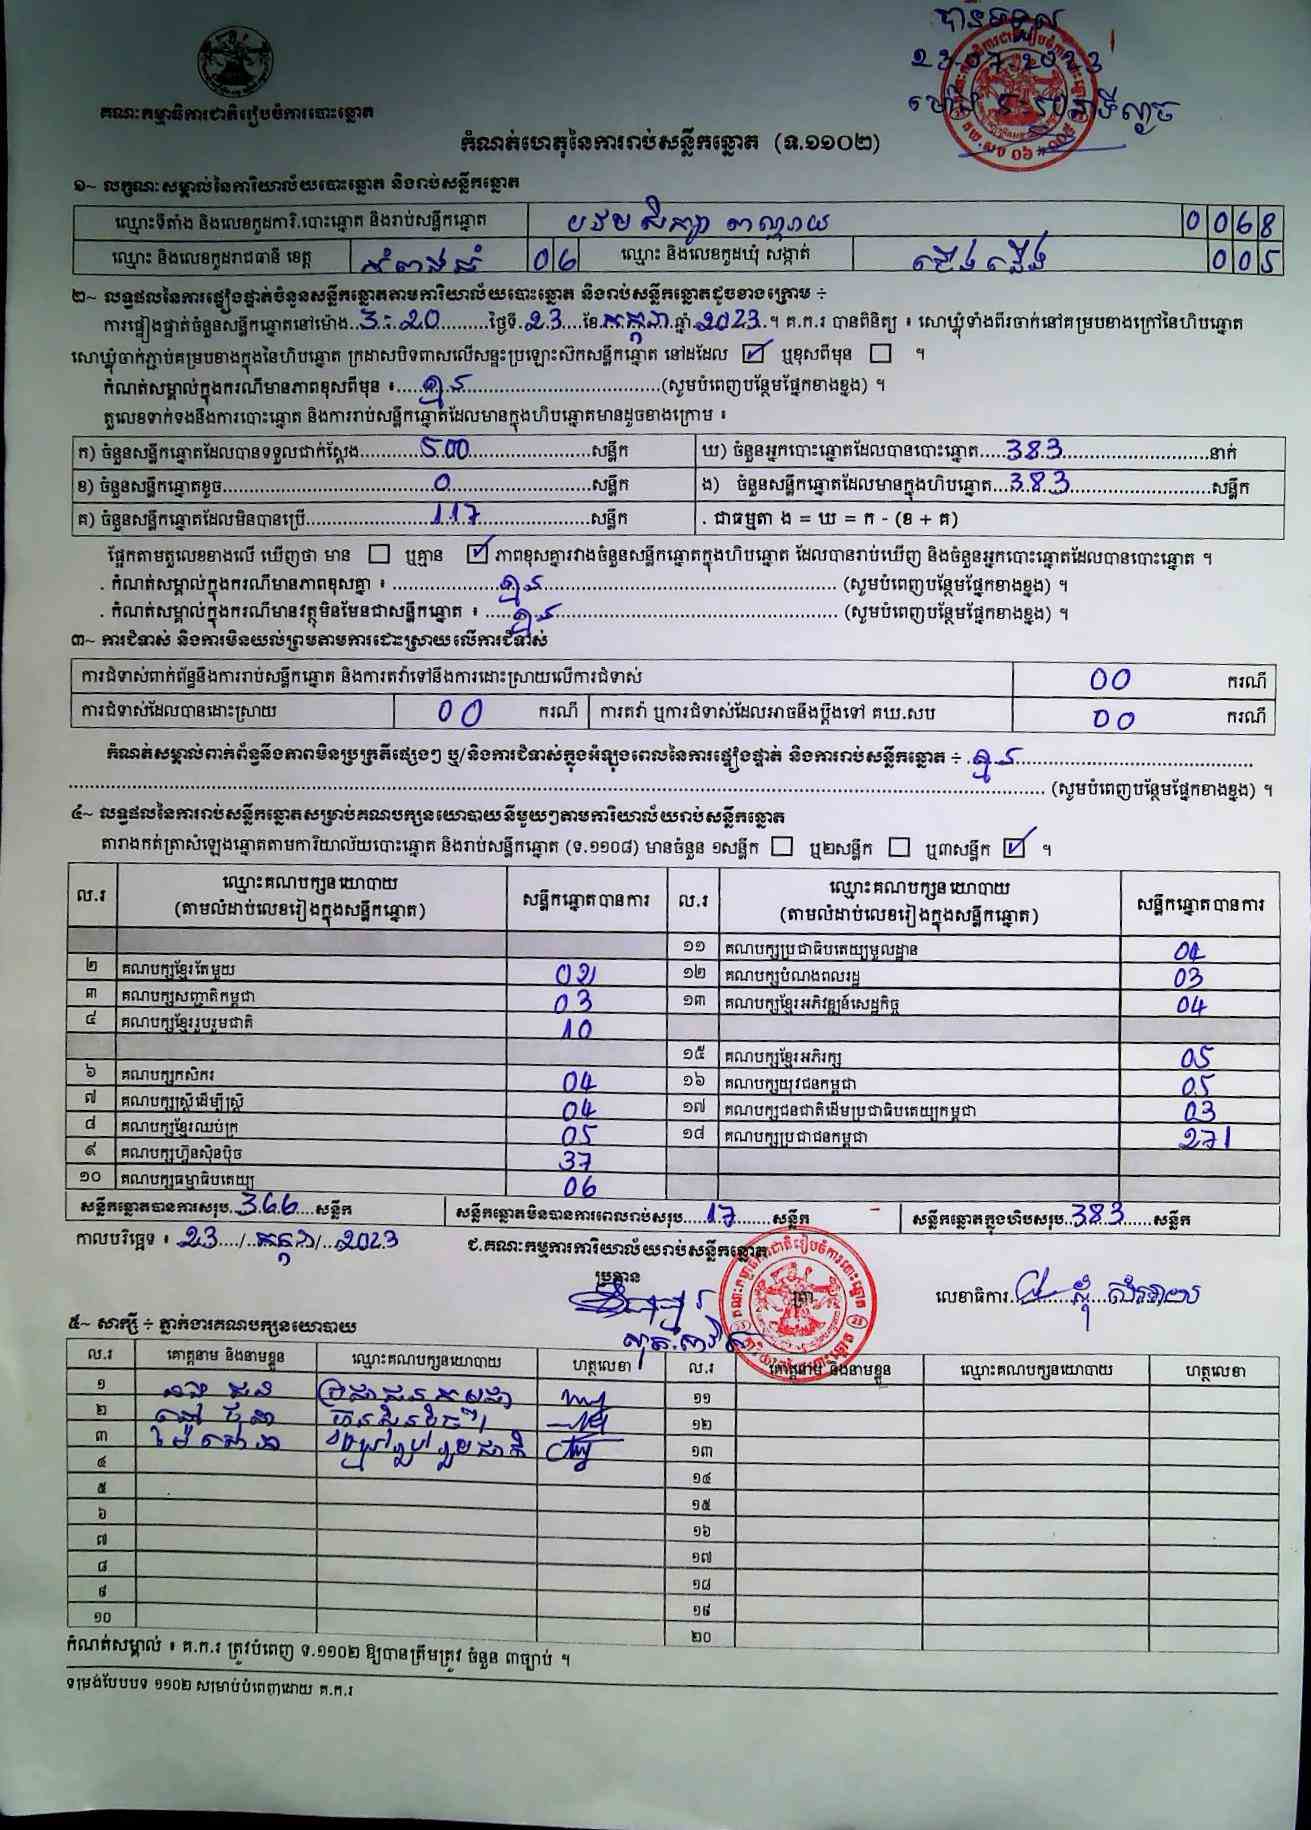 បានទទួល
23.07.2023
គណៈកម្មាធិការជាតិរៀបចំការបោះឆ្នោត
កំណត់ហេតុនៃការរាប់សន្លឹកឆ្នោត (ទ.១១០២)
គឃ.សប ០៦
១~ លក្ខណៈសម្គាល់នៃការិយាល័យបោះឆ្នោត និងរាប់សន្លឹកឆ្នោត
ឈ្មោះទីតាំង និងលេខកូដការិ.បោះឆ្នោត និងរាប់សន្លឹកឆ្នោត បឋមសិក្សា 0068
ឈ្មោះ និងលេខកូដរាជធានី ខេត្ត កំពង់ធំ 06 ឈ្មោះ និងលេខកូដឃុំ សង្កាត់ ជើងដើង 005
២~ លទ្ធផលនៃការផ្ទៀងផ្ទាត់ចំនួនសន្លឹកឆ្នោតតាមការិយាល័យបោះឆ្នោត និងរាប់សន្លឹកឆ្នោតដូចខាងក្រោម ÷
ការផ្ទៀងផ្ទាត់ចំនួនសន្លឹកឆ្នោតនៅម៉ោង 3:20 ថ្ងៃទី 23 ខែ កក្កដា ឆ្នាំ 2023 ។ គ.ក.រ បានពិនិត្យ ៖ សោឃ្លុំទាំងពីរចាក់នៅគម្របខាងក្រៅនៃហិបឆ្នោត
សោឃ្លុំចាក់ភ្ជាប់គម្របខាងក្នុងនៃហិបឆ្នោត ក្រដាសបិទពាសលើសន្ទះប្រឡោះស៊កសន្លឹកឆ្នោត នៅដដែល ☑ ឬខុសពីមុន ☐ ។
កំណត់សម្គាល់ក្នុងករណីមានភាពខុសពីមុន ៖ គ្មាន (សូមបំពេញបន្ថែមផ្នែកខាងខ្នង) ។
តួលេខទាក់ទងនឹងការបោះឆ្នោត និងការរាប់សន្លឹកឆ្នោតដែលមានក្នុងហិបឆ្នោតមានដូចខាងក្រោម ៖
ក) ចំនួនសន្លឹកឆ្នោតដែលបានទទួលជាក់ស្ដែង 500 សន្លឹក ឃ) ចំនួនអ្នកបោះឆ្នោតដែលបានបោះឆ្នោត 383 នាក់
ខ) ចំនួនសន្លឹកឆ្នោតខូច 0 សន្លឹក ង) ចំនួនសន្លឹកឆ្នោតដែលមានក្នុងហិបឆ្នោត 383 សន្លឹក
គ) ចំនួនសន្លឹកឆ្នោតដែលមិនបានប្រើ 117 សន្លឹក . ជាធម្មតា ង = ឃ = ក - (ខ + គ)
ផ្អែកតាមតួលេខខាងលើ ឃើញថា មាន ☐ ឬគ្មាន ☑ ភាពខុសគ្នារវាងចំនួនសន្លឹកឆ្នោតក្នុងហិបឆ្នោត ដែលបានរាប់ឃើញ និងចំនួនអ្នកបោះឆ្នោតដែលបានបោះឆ្នោត ។
. កំណត់សម្គាល់ក្នុងករណីមានភាពខុសគ្នា ៖ គ្មាន (សូមបំពេញបន្ថែមផ្នែកខាងខ្នង) ។
. កំណត់សម្គាល់ក្នុងករណីមានវត្ថុមិនមែនជាសន្លឹកឆ្នោត ៖ គ្មាន (សូមបំពេញបន្ថែមផ្នែកខាងខ្នង) ។
៣~ ការជំទាស់ និងការមិនយល់ព្រមតាមការដោះស្រាយលើការជំទាស់
ការជំទាស់ពាក់ព័ន្ធនឹងការរាប់សន្លឹកឆ្នោត និងការតវ៉ាទៅនឹងការដោះស្រាយលើការជំទាស់ 00 ករណី
ការជំទាស់ដែលបានដោះស្រាយ 00 ករណី ការតវ៉ា ឬការជំទាស់ដែលអាចនឹងប្ដឹងទៅ គឃ.សប 00 ករណី
កំណត់សម្គាល់ពាក់ព័ន្ធនឹងភាពមិនប្រក្រតីផ្សេងៗ ឬ/និងការជំទាស់ក្នុងអំឡុងពេលនៃការផ្ទៀងផ្ទាត់ និងការរាប់សន្លឹកឆ្នោត ÷ គ្មាន
(សូមបំពេញបន្ថែមផ្នែកខាងខ្នង) ។
៤~ លទ្ធផលនៃការរាប់សន្លឹកឆ្នោតសម្រាប់គណបក្សនយោបាយនីមួយៗតាមការិយាល័យរាប់សន្លឹកឆ្នោត
តារាងកត់ត្រាសំឡេងឆ្នោតតាមការិយាល័យបោះឆ្នោត និងរាប់សន្លឹកឆ្នោត (ទ.១១០៨) មានចំនួន ១សន្លឹក ☐ ឬ២សន្លឹក ☐ ឬ៣សន្លឹក ☑ ។
ល.រ ឈ្មោះគណបក្សនយោបាយ (តាមលំដាប់លេខរៀងក្នុងសន្លឹកឆ្នោត) សន្លឹកឆ្នោតបានការ ល.រ ឈ្មោះគណបក្សនយោបាយ (តាមលំដាប់លេខរៀងក្នុងសន្លឹកឆ្នោត) សន្លឹកឆ្នោតបានការ
១១ គណបក្សប្រជាធិបតេយ្យមូលដ្ឋាន 04
២ គណបក្សខ្មែរតែមួយ 02 ១២ គណបក្សបំណងពលរដ្ឋ 03
៣ គណបក្សសញ្ជាតិកម្ពុជា 03 ១៣ គណបក្សខ្មែរអភិវឌ្ឍន៍សេដ្ឋកិច្ច 04
៤ គណបក្សខ្មែររួបរួមជាតិ 10
១៥ គណបក្សខ្មែរអភិរក្ស 05
៦ គណបក្សកសិករ 04 ១៦ គណបក្សយុវជនកម្ពុជា 05
៧ គណបក្សស្ត្រីដើម្បីស្ត្រី 04 ១៧ គណបក្សជនជាតិដើមប្រជាធិបតេយ្យកម្ពុជា 03
៨ គណបក្សខ្មែរឈប់ក្រ 05 ១៨ គណបក្សប្រជាជនកម្ពុជា 271
៩ គណបក្សហ្វ៊ុនស៊ិនប៉ិច 37
១០ គណបក្សធម្មាធិបតេយ្យ 06
សន្លឹកឆ្នោតបានការសរុប 366 សន្លឹក សន្លឹកឆ្នោតមិនបានការពេលរាប់សរុប 17 សន្លឹក សន្លឹកឆ្នោតក្នុងហិបសរុប 383 សន្លឹក
កាលបរិច្ឆេទ ៖ 23 / កក្កដា / 2023 ជ.គណៈកម្មការការិយាល័យរាប់សន្លឹកឆ្នោត
ប្រធាន
ត្រា
លេខាធិការ
៥~ សាក្សី ÷ ភ្នាក់ងារគណបក្សនយោបាយ
ល.រ គោត្តនាម និងនាមខ្លួន ឈ្មោះគណបក្សនយោបាយ ហត្ថលេខា ល.រ គោត្តនាម និងនាមខ្លួន ឈ្មោះគណបក្សនយោបាយ ហត្ថលេខា
១ ប្រជាជនកម្ពុជា ១១
២ ហ៊្វុនស៊ិនប៉ិច ១២
៣ ខ្មែររួបរួមជាតិ ១៣
៤ ១៤
៥ ១៥
៦ ១៦
៧ ១៧
៨ ១៨
៩ ១៩
១០ ២០
កំណត់សម្គាល់ ៖ គ.ក.រ ត្រូវបំពេញ ទ.១១០២ ឱ្យបានត្រឹមត្រូវ ចំនួន ៣ច្បាប់ ។
ទម្រង់បែបបទ ១១០២ សម្រាប់បំពេញដោយ គ.ក.រ